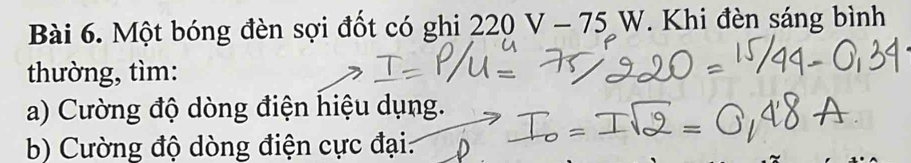 Bài 6. Một bóng đèn sợi đốt có ghi 220 V – 75 W. Khi đèn sáng bình
U P
thường, tìm:
I = P/U = 75/220 = 15/44 = 0,34
a) Cường độ dòng điện hiệu dụng.
b) Cường độ dòng điện cực đại.
I₀ = I√2 = 0,48 A.